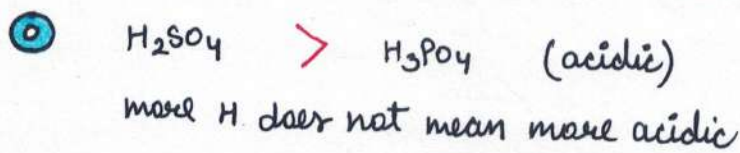 H₂SO₄ > H₃PO₄ (acidic)
more H does not mean more acidic